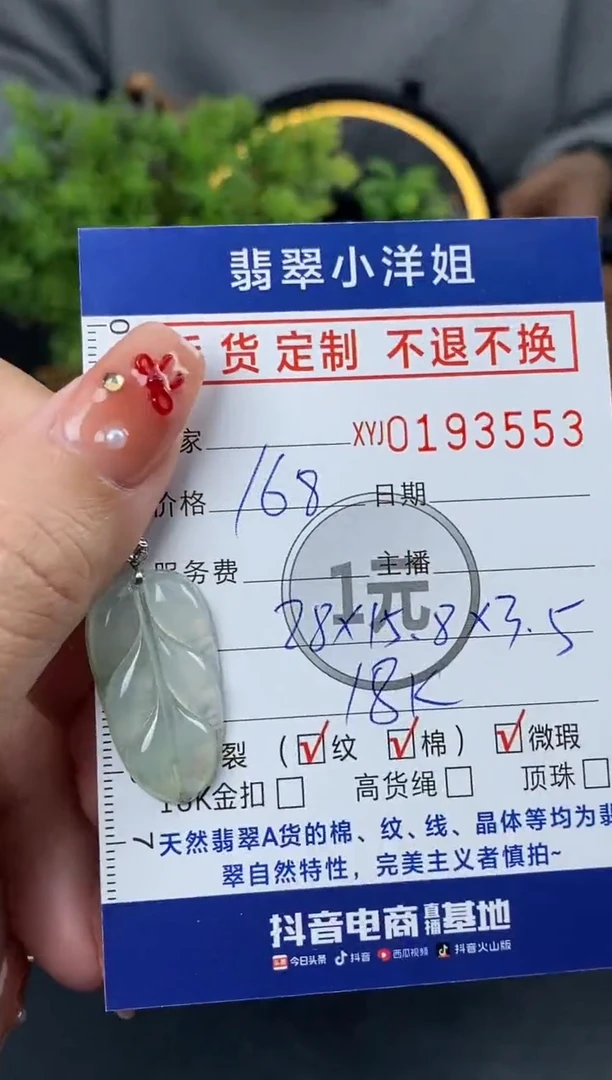 翡翠小洋姐
货定制 不退不换
家 XYJ0193553
价格 168 日期
服务费 主播
1元
28×15.8×3.5
18K
裂 (☑纹 ☑棉) ☑微瑕
18K金扣□ 高货绳□ 顶珠□
天然翡翠A货的棉、纹、线、晶体等均为翡
翠自然特性，完美主义者慎拍~
抖音电商直播基地
今日头条 抖音 西瓜视频 抖音火山版
0
7